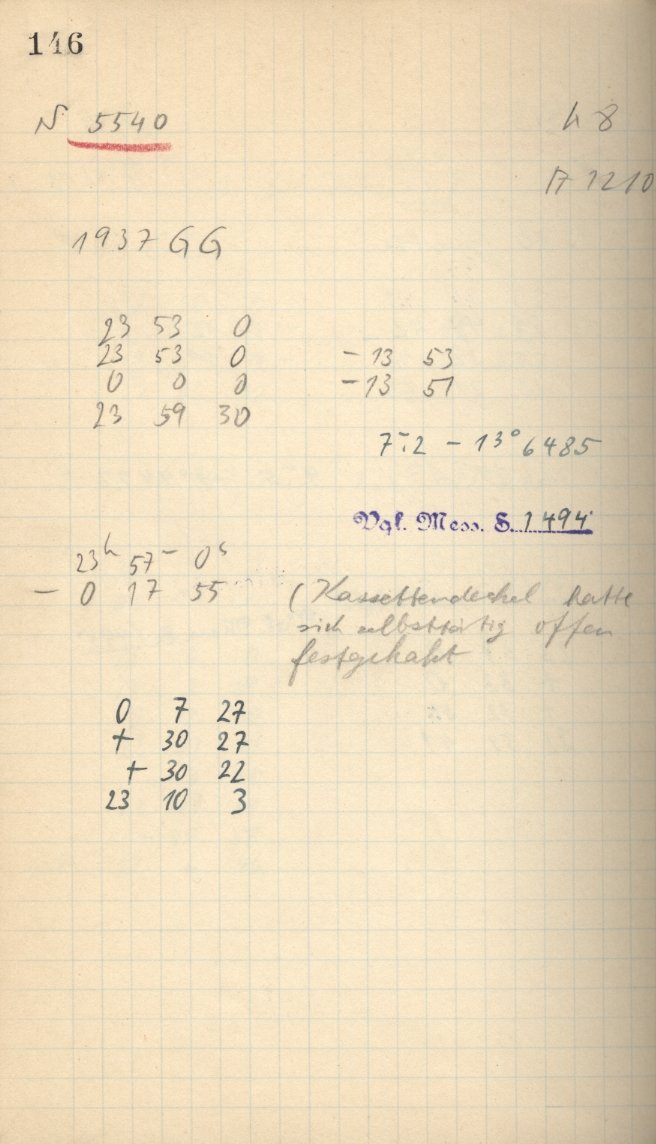 146
N 5540 h 8
17 12 10
1937 GG
23 53 0
23 53 0 - 13 53
0 0 0 - 13 51
23 59 30
7m.2 - 13° 6485
Vgl. Mess. S. 1494
23h 57m 0s
- 0 17 55 (Kassettendeckel hatte
sich selbsttätig offen
festgehakt
0 7 27
+ 30 27
+ 30 22
23 10 3